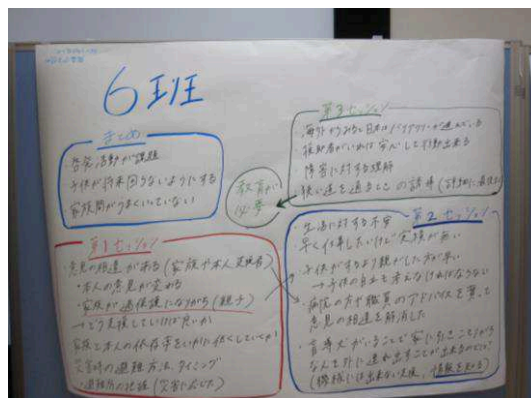 6班
まとめ
・啓発活動が課題
子供が将来困らないようにする
・家族間がうまくいっていない
教育が
必要
第3セッション
・海外からみると日本はバリアフリーが進んでいる
・援助者がいれば安心して行動出来る
・障害に対する理解
・狭い道を通るとこの誘導
第1セッション
・意見の相違がある(家族や本人、支援者)
・本人の意見が変わる
・家族が過保護になりがち(親子)
→どう支援していけば良いか
家族と本人の依存等をいかに
災害時の避難方法、タイミング
・避難所の
第2セッション
・生活に対する不安
・早く仕事したいけど実績が無い
・子供がするより親がした方が早い
→子供の自立も考えなければならない
・病院の方や職員のアドバイスを貰って
意見の相違を解消した
・盲導犬がいることで家に引きこもりがち
な人を外に連れ出すことが出来るのでは
(機械には出来ない支援、情報を知る)